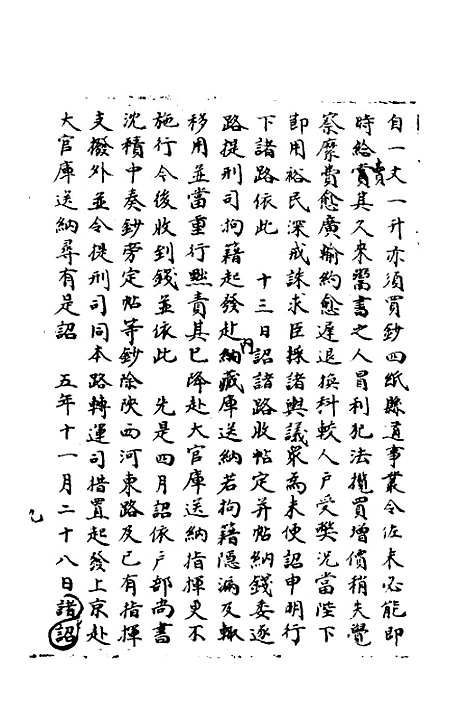 自一文一升亦須買鈔四紙縣道事叢令佐未必能即
時給賣其久來鬻書之人冒利犯法攬買增價稍失覺
察糜費愈廣輸約愈遲退換科較人戶受弊況當陛下
即用裕民深戒誅求臣採諸輿議衆為未便詔申明行
下諸路依此　十三日詔諸路收帖定并帖納錢委逐
路提刑司拘籍起發赴內藏庫送納若拘籍隱漏及輒
移用並當重行黜責其已降赴大官庫送納指揮更不
施行令後收到錢並依此　先是四月詔依戶部尚書
沈積中奏鈔旁定帖等鈔除陝西河東路及已有指揮
支撥外並令提刑司同本路轉運司措置起發上京赴
大官庫送納尋有是詔　五年十一月二十八日諸詔
九